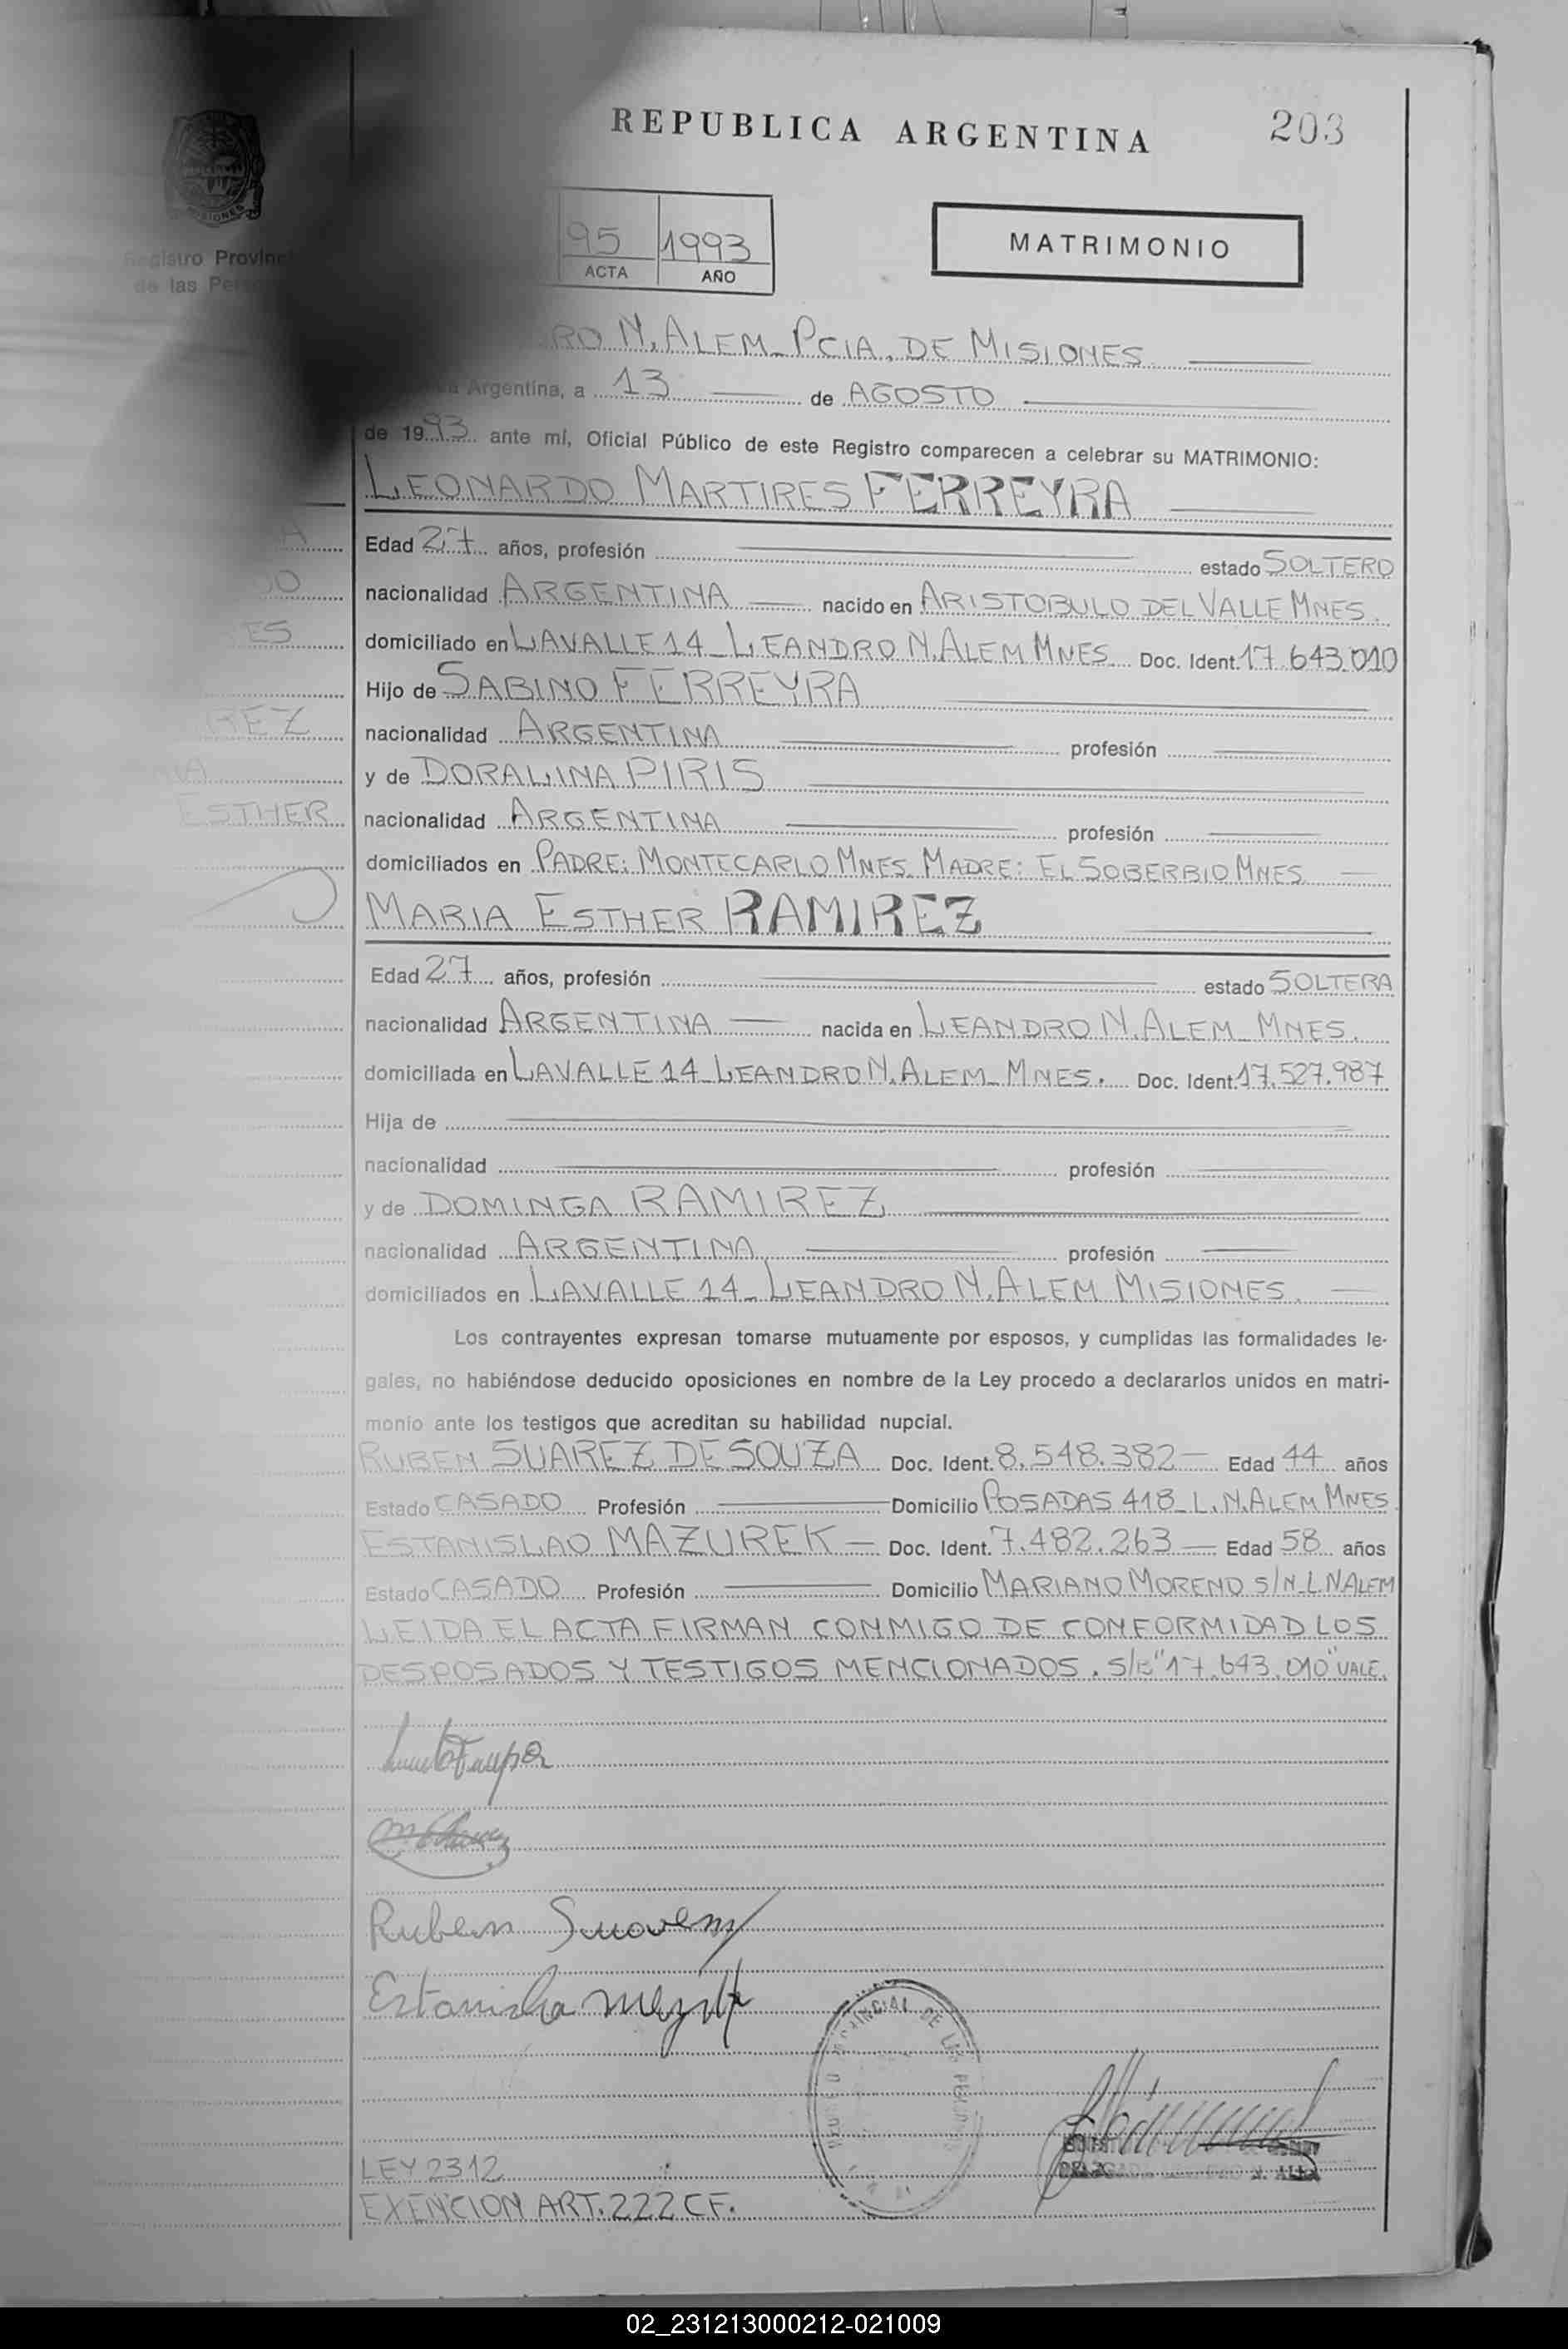 REPUBLICA ARGENTINA
203
Registro Provinc
de las Pers
95 1993
ACTA AÑO
MATRIMONIO
RO N. ALEM_ PCIA. DE MISIONES
Argentina, a 13 de AGOSTO
de 1993 ante mí, Oficial Público de este Registro comparecen a celebrar su MATRIMONIO:
LEONARDO MARTIRES FERREYRA
Edad 27 años, profesión estado SOLTERO
nacionalidad ARGENTINA nacido en ARISTOBULO DEL VALLE MNES.
domiciliado en LAVALLE 14_ LEANDRO N. ALEM MNES. Doc. Ident. 17.643.010
Hijo de SABINO FERREYRA
nacionalidad ARGENTINA profesión
y de DORALINA PIRIS
nacionalidad ARGENTINA profesión
domiciliados en PADRE: MONTECARLO MNES. MADRE: EL SOBERBIO MNES
MARIA ESTHER RAMIREZ
Edad 27 años, profesión estado SOLTERA
nacionalidad ARGENTINA nacida en LEANDRO N. ALEM_ MNES.
domiciliada en LAVALLE 14_ LEANDRO N. ALEM_ MNES. Doc. Ident. 17.527.987
Hija de
nacionalidad profesión
y de DOMINGA RAMIREZ
nacionalidad ARGENTINA profesión
domiciliados en LAVALLE 14_ LEANDRO N. ALEM MISIONES.
Los contrayentes expresan tomarse mutuamente por esposos, y cumplidas las formalidades le-
gales, no habiéndose deducido oposiciones en nombre de la Ley procedo a declararlos unidos en matri-
monio ante los testigos que acreditan su habilidad nupcial.
RUBEN SUAREZ DE SOUZA Doc. Ident. 8.548.382 Edad 44 años
Estado CASADO Profesión Domicilio POSADAS 418_ L.N. ALEM MNES
ESTANISLAO MAZUREK Doc. Ident. 7.482.263 Edad 58 años
Estado CASADO Profesión Domicilio MARIANO MORENO S/N_ L.N ALEM
LEIDA EL ACTA FIRMAN CONMIGO DE CONFORMIDAD LOS
DESPOSADOS Y TESTIGOS MENCIONADOS. S/B "17.643.010" VALE.
Ruben
LEY 2312
EXENCION ART. 222 CF.
02_231213000212-021009